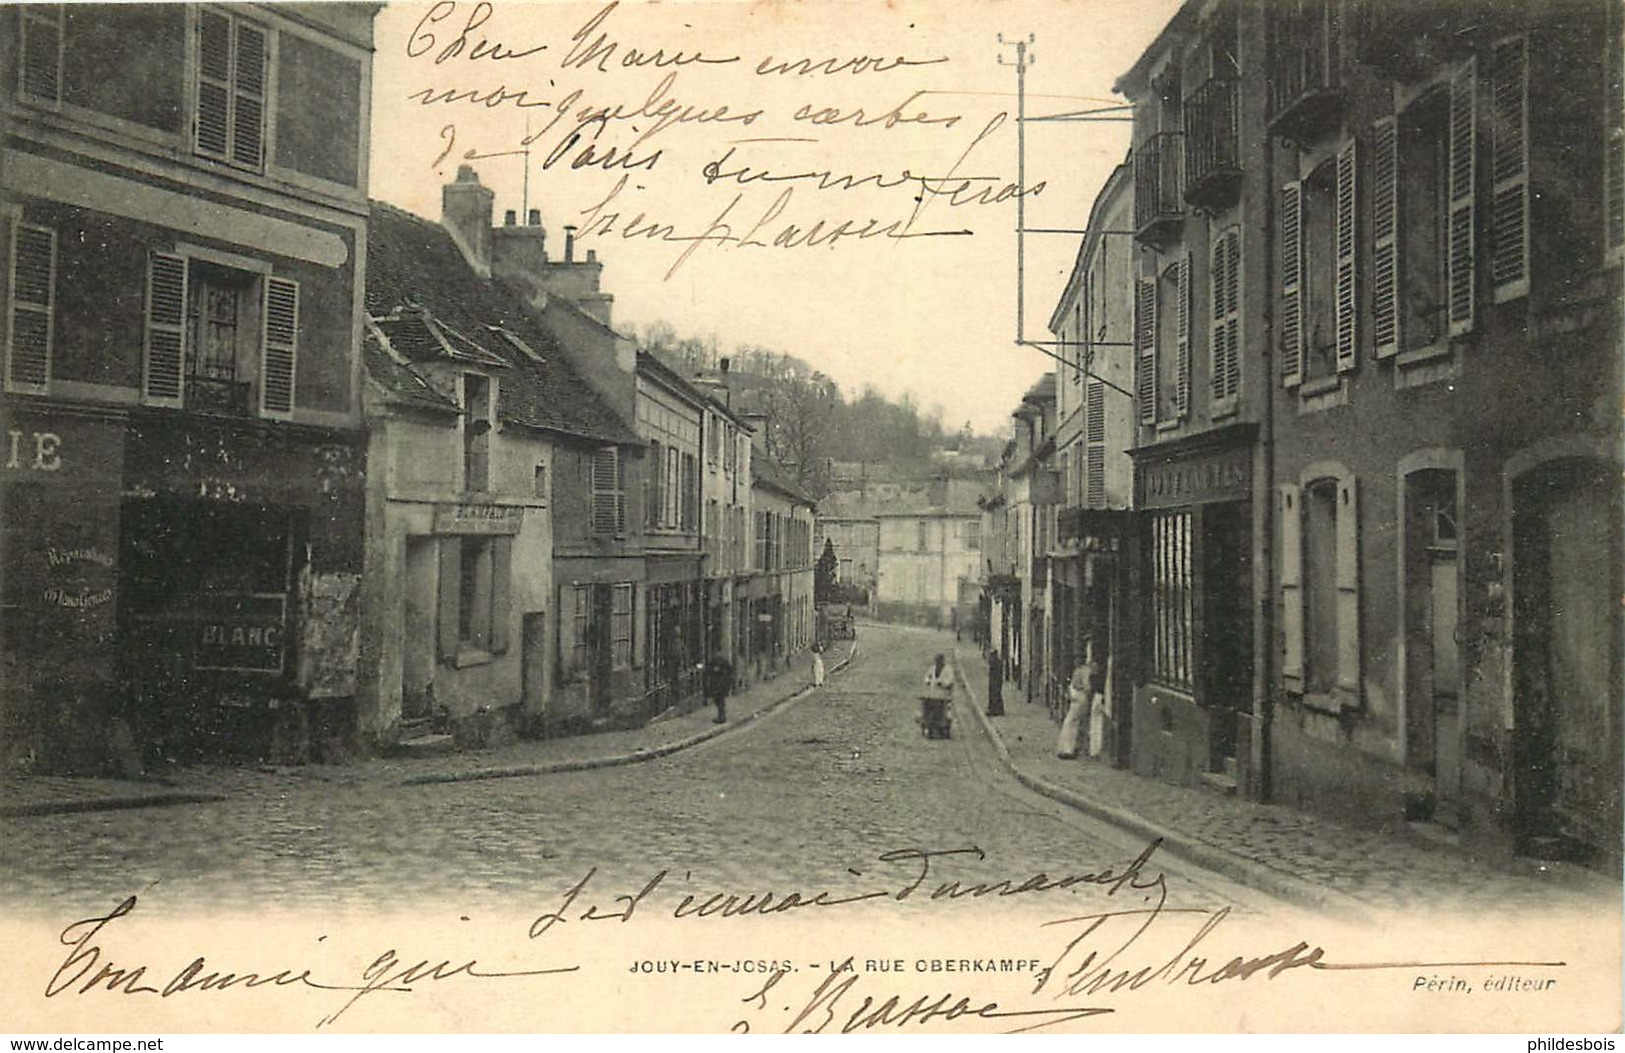 Cher Marie envoie
moi quelques cartes
de Paris tu me feras
bien plaisir
IE
Réparations
BLANC
Je t'écrirai Dimanche
Ton amie qui
JOUY-EN-JOSAS. - LA RUE OBERKAMPF
t'embrasse
Brassac
Périn, éditeur
delcampe.net
phildesbois